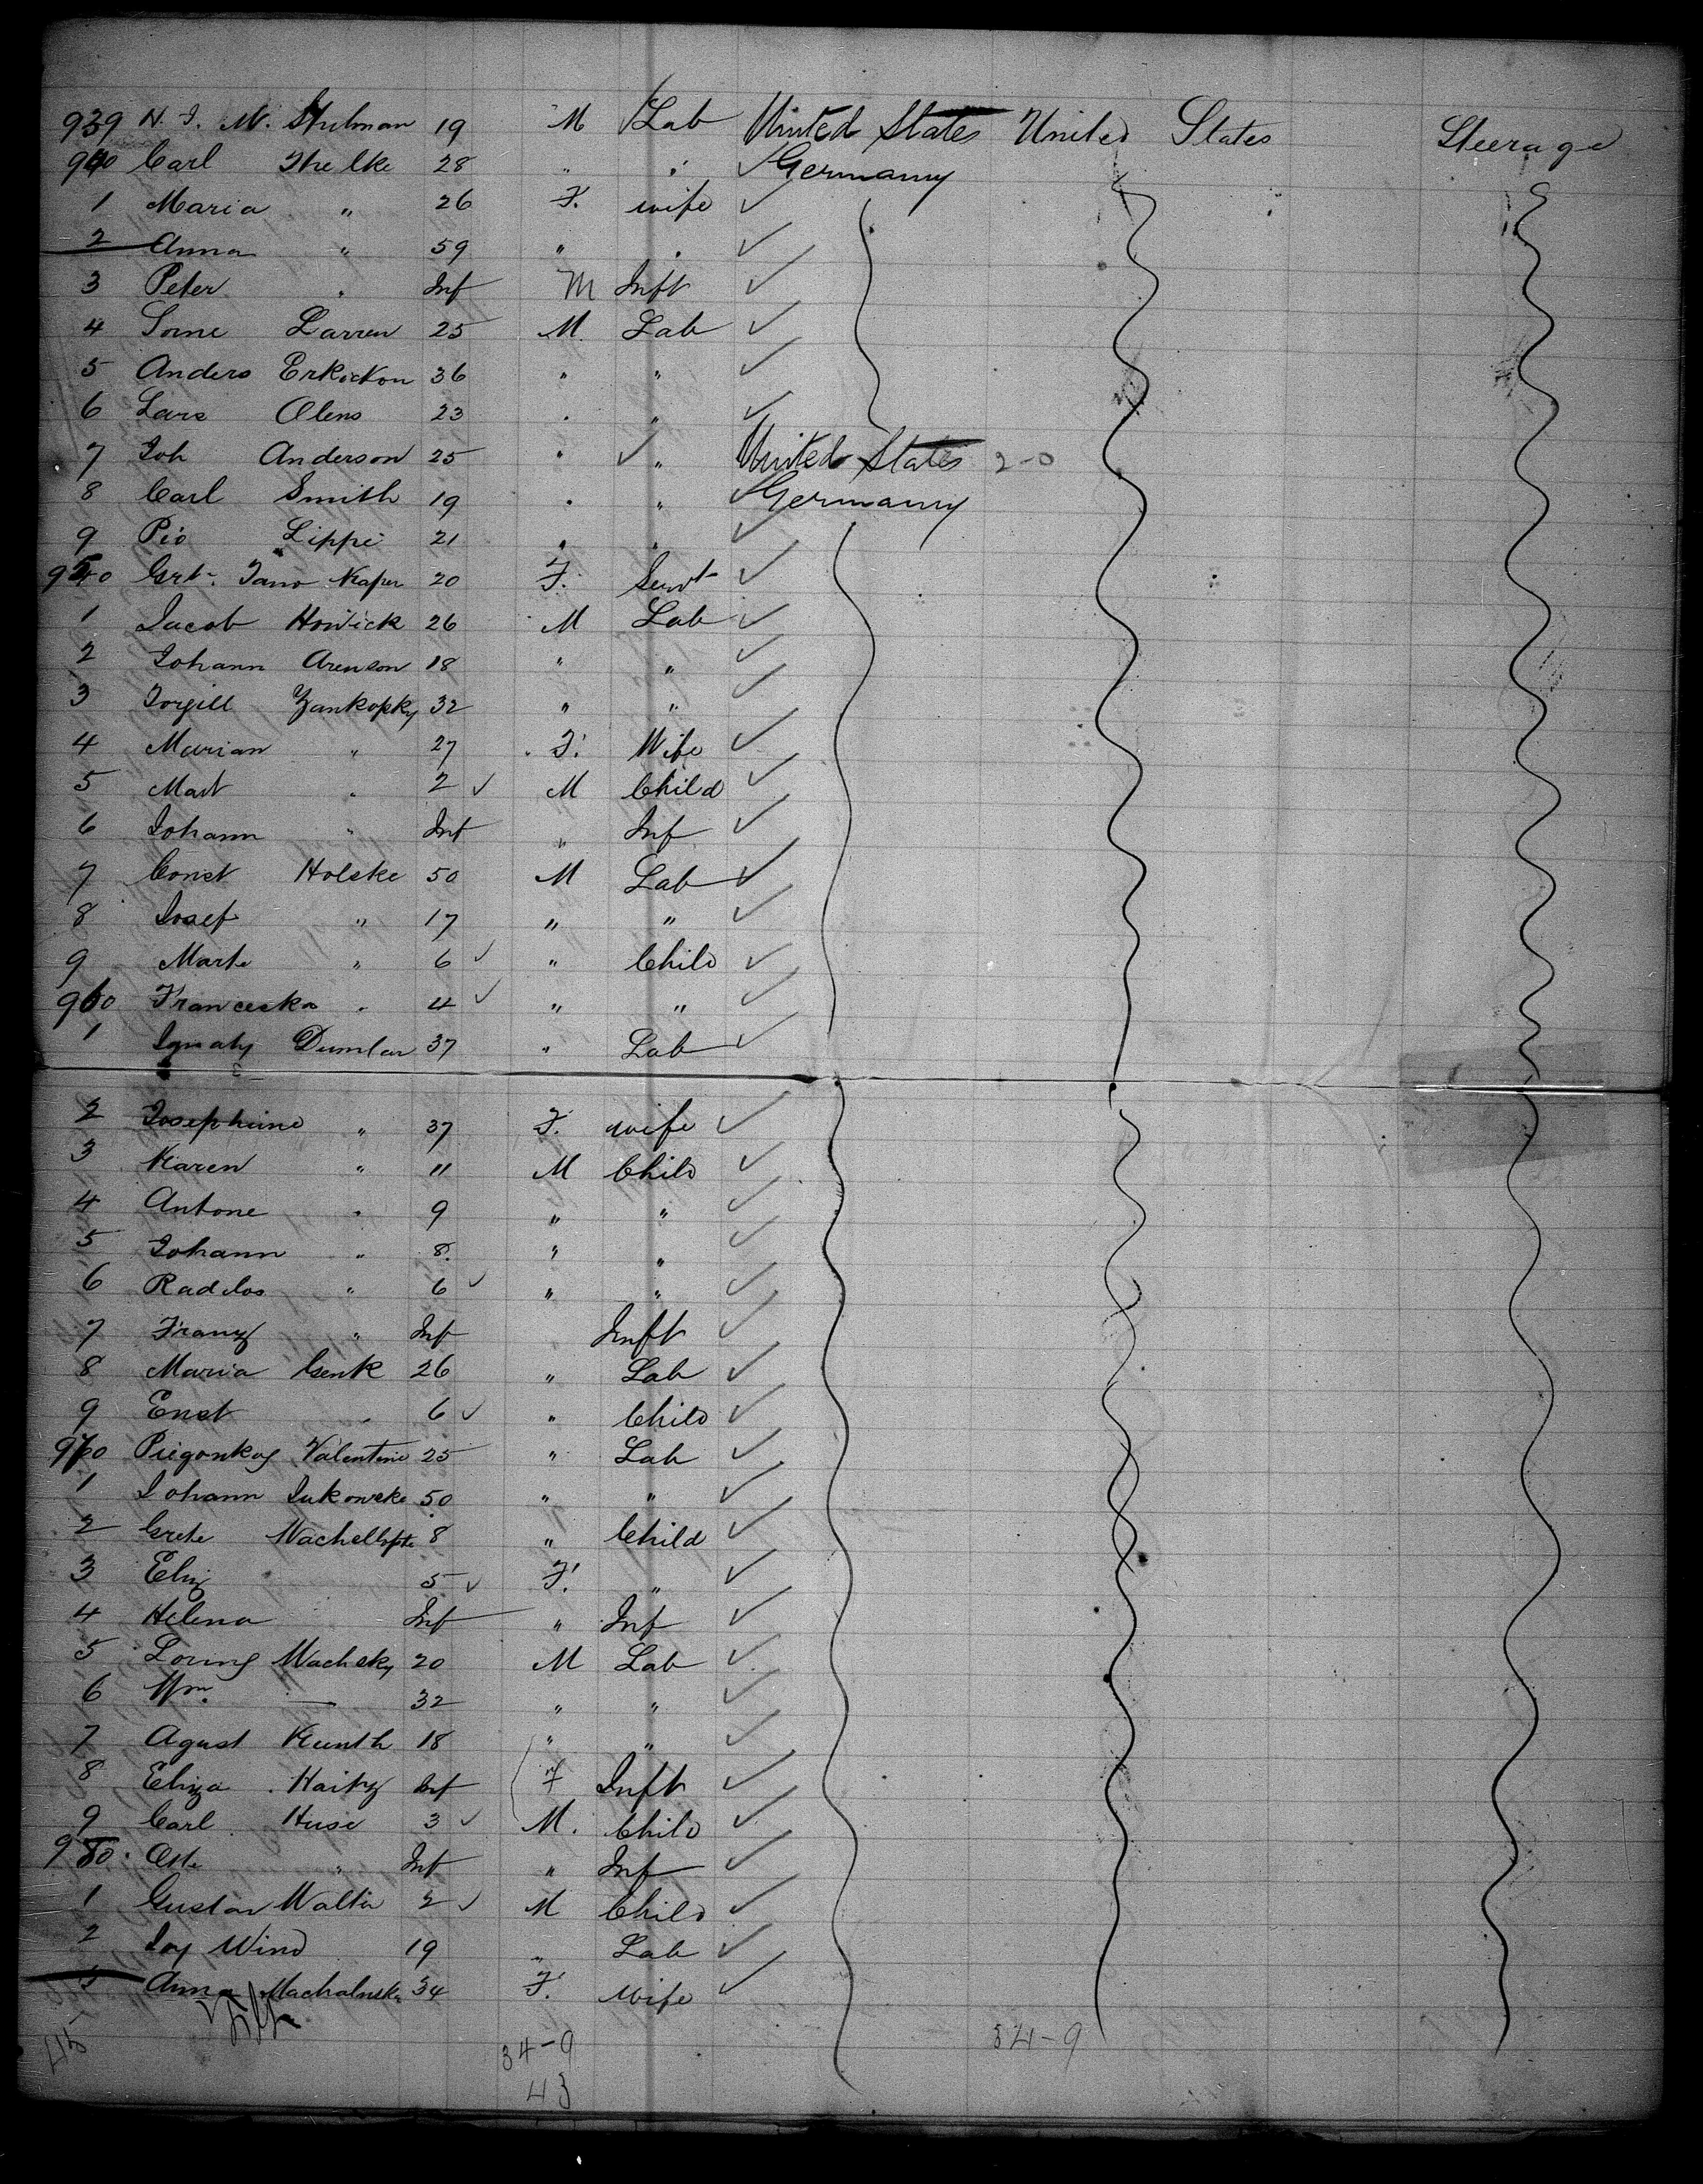 939 H. J. M. Stulman 19 M Lab United States United States Steerage
940 Carl Thelke 28 " " Germany
1 Maria " 26 F. wife
2 Anna " 59 " "
3 Peter " Inf M Inft
4 Sorne Larren 25 M. Lab
5 Anders Erkickon 36 " "
6 Lars Olens 23 " "
7 Joh Anderson 25 " " United States 2-0
8 Carl Smith 19 " " Germany
9 Pio Lippi 21 " "
950 Grt. Jano Kaper 20 F. Servt
1 Jacob Howick 26 M Lab
2 Johann Arenson 18 " "
3 Torgill Zankopky 32 " "
4 Marian " 27 F. Wife
5 Mart " 2 M Child
6 Johann " Inf " Inf
7 Const Holske 50 M Lab
8 Josef " 17 " "
9 Marte " 6 " Child
960 Franceska " 4 " "
1 Ignaty Dumlar 37 " Lab
2 Josephine " 37 F. wife
3 Karen " 11 M Child
4 Antone " 9 " "
5 Johann " 8 " "
6 Radelos " 6 " "
7 Franz " Inf Inft
8 Maria Genk 26 " Lab
9 Enst " 6 " Child
970 Piegonkoy Valentine 25 " Lab
1 Johann Jukowske 50 " "
2 Grete 8 " Child
3 Eliz 5 F. "
4 Helena Inf " Inf
5 Wachsky 20 M Lab
6 Wm. — 32 " "
7 Agust Kunth 18 " "
8 Eliza Haitz Inf F Inft
9 Carl Huse 3 M. Child
980 Otte " Inf " Inf
1 Gustav Walter 2 M Child
2 Joy Wind 19 " Lab
3 Anna Machalnska 34 F. wife
45 34-9 34-9
43